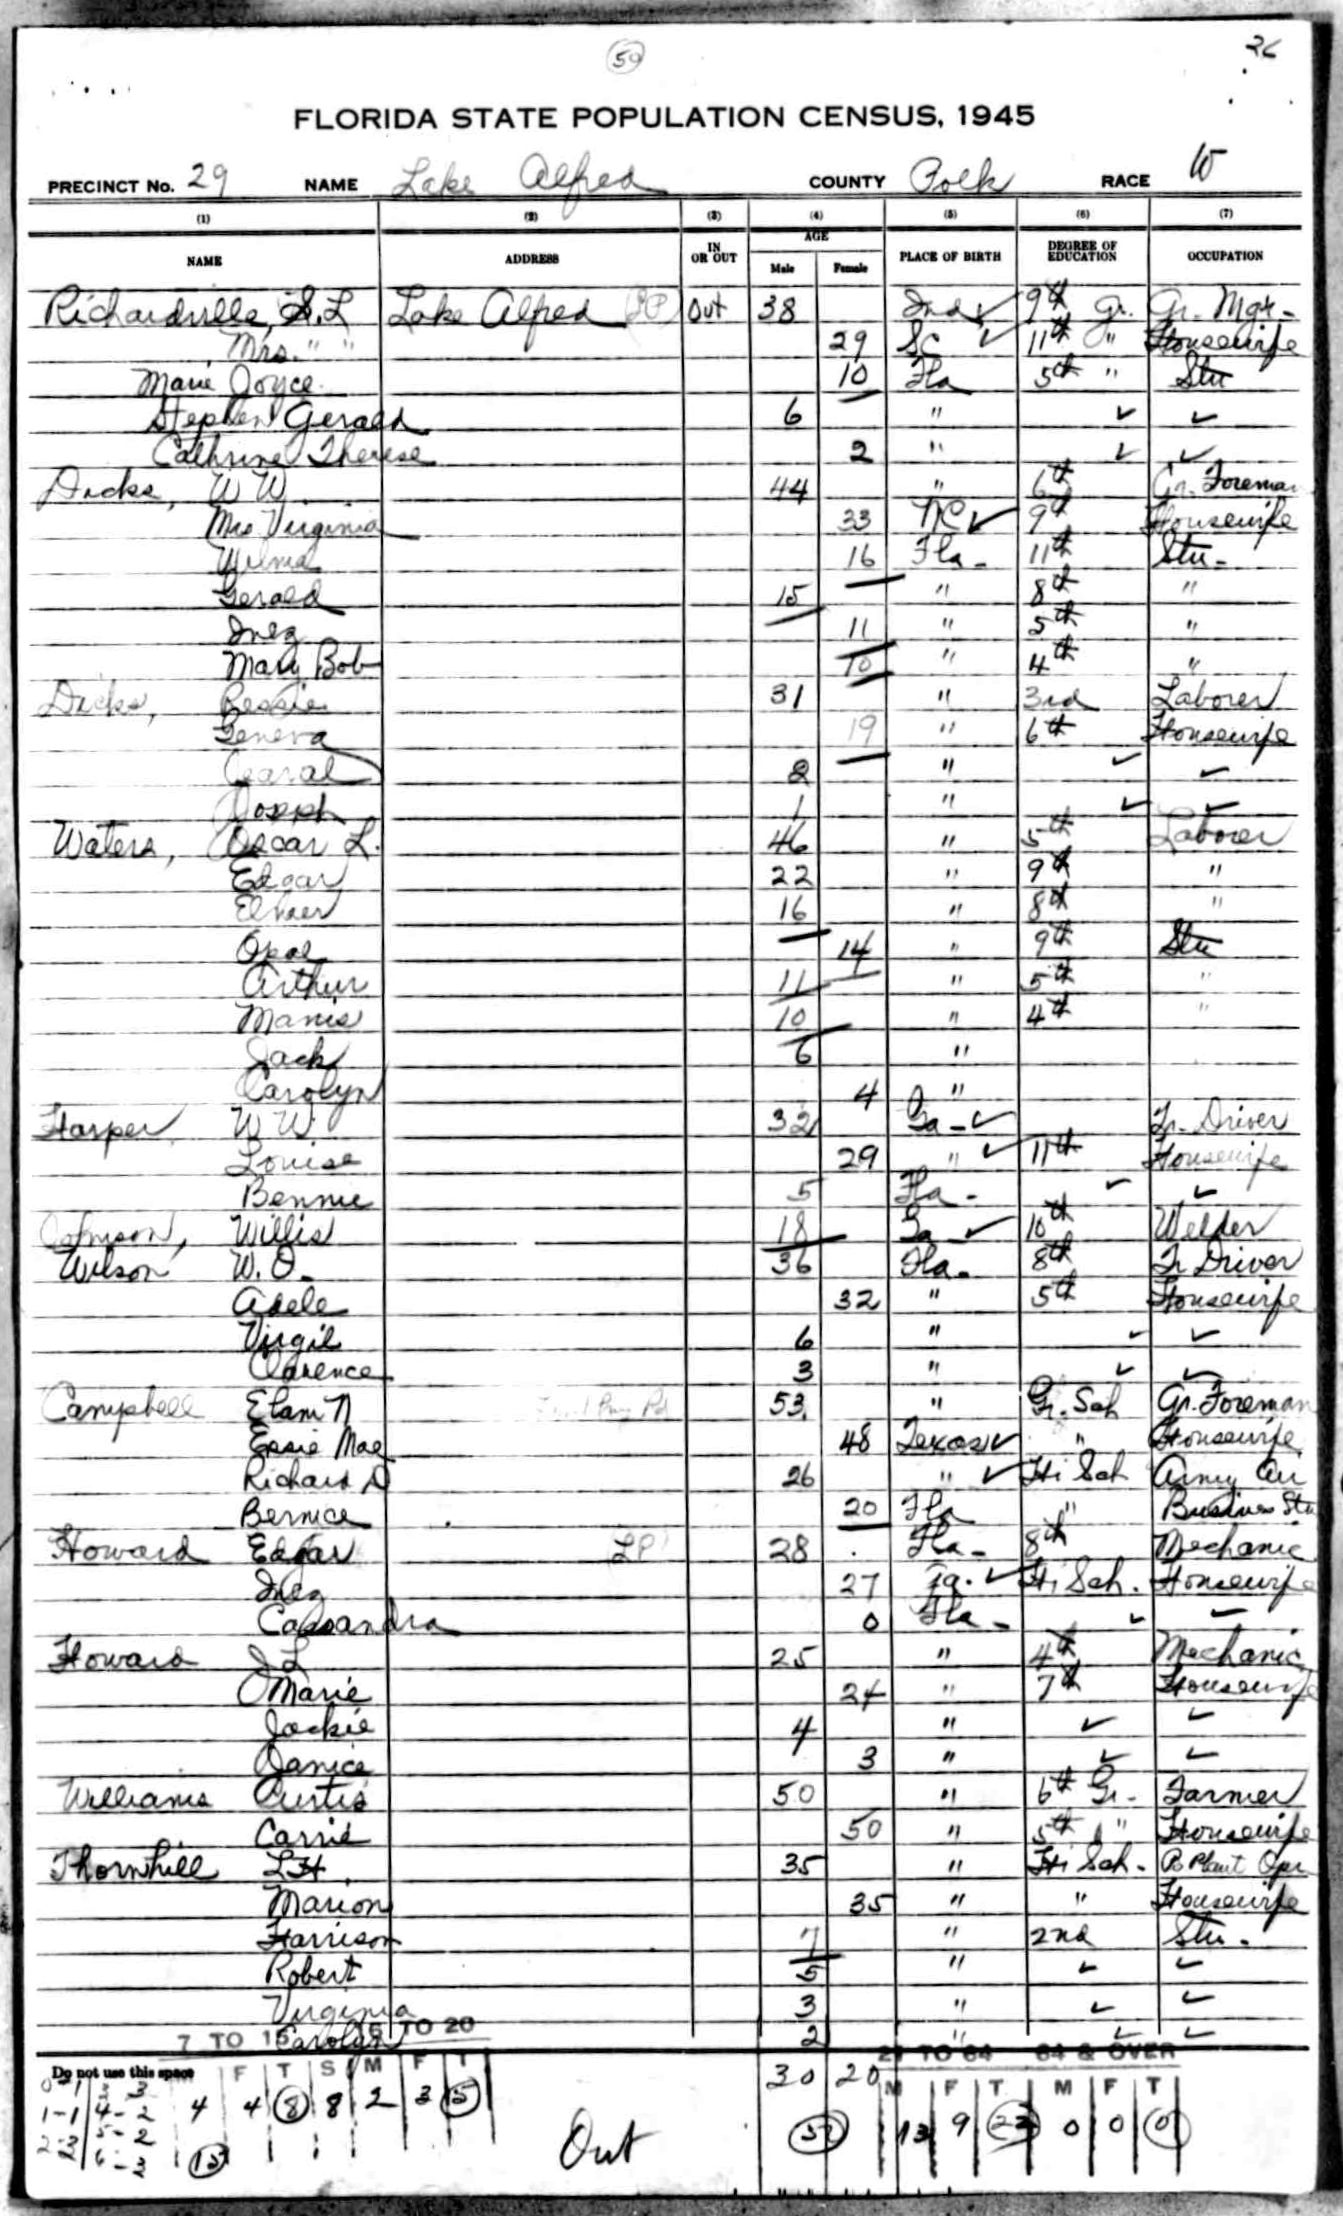 50
26
FLORIDA STATE POPULATION CENSUS, 1945
PRECINCT No. 29 NAME Lake Alfred COUNTY Polk RACE W
(1) (2) (3) (4) (5) (6) (7)
NAME ADDRESS IN OR OUT AGE Male Female PLACE OF BIRTH DEGREE OF EDUCATION OCCUPATION
Richardville, S. L Lake Alfred (LP) Out 38 Ind ✓ 9th Gr. Gr. Mgr.
Mrs. " " 29 SC ✓ 11th " Housewife
Marie Joyce 10 Fla 5th " Stu
Stephen Gerald 6 " ✓ ✓
Cathrine Therese 2 " ✓ ✓
Dicks, W W 44 " 6th Gr. Foreman
Mrs Virginia 33 NC ✓ 9th Housewife
Wilma 16 Fla - 11th Stu -
Gerald 15 " 8th "
Inez 11 " 5th "
Mary Bob 10 " 4th "
Dicks, Bessie 31 " 3rd Laborer
Geneva 19 " 6th Housewife
Caral 2 " ✓ ✓
Joseph 1 " ✓ ✓
Waters, Oscar L. 46 " 5th Laborer
Edgar 22 " 9th "
16 " 8th "
Opal 14 " 9th Stu
Arthur 11 " 5th "
10 " 4th "
Jack 6 "
Carolyn 4 "
Harper W W. 32 Ga - ✓ Tr. Driver
Louise 29 " ✓ 11th Housewife
Bennie 5 Fla - ✓ ✓
Johnson, Willis 18 Ga ✓ 10th Welder
Wilson W. O. 36 Fla - 8th Tr Driver
Adele 32 " 5th Housewife
Virgil 6 " ✓ ✓
Clarence 3 " ✓ ✓
Campbell Elam N 53 " Gr. Sch Gr. Foreman
Essie Mae 48 Texas ✓ " Housewife
Richard D 26 " ✓ Hi Sch Army Air
Bernice 20 Fla " Business Stu
Howard Edgar (LP) 28 Fla - 8th Mechanic
Inez 27 Ga. ✓ Hi Sch. Housewife
Cassandra 0 Fla - ✓ ✓
Howard J L 25 " 4th Mechanic
Marie 24 " 7th Housewife
Jackie 4 " ✓ ✓
Janice 3 " ✓ ✓
Williams Curtis 50 " 6th Gr - Farmer
Carrie 50 " 5th " Housewife
Thornhill L H 35 " Hi Sch - P. Plant Opr
Marion 35 " " Housewife
Harrison 7 " 2nd Stu -
Robert 5 " ✓ ✓
Virginia 3 " ✓ ✓
Carolyn 2 " ✓ ✓
7 TO 15 16 TO 20 21 TO 64 64 & OVER
Do not use this space F T S M F T 30 20 M F T M F T
0-1 3-3 4 4 8 8 2 3 5 13 9 22 0 0 0
1-1 4-2
2-3 5-2
6-3 15 Out